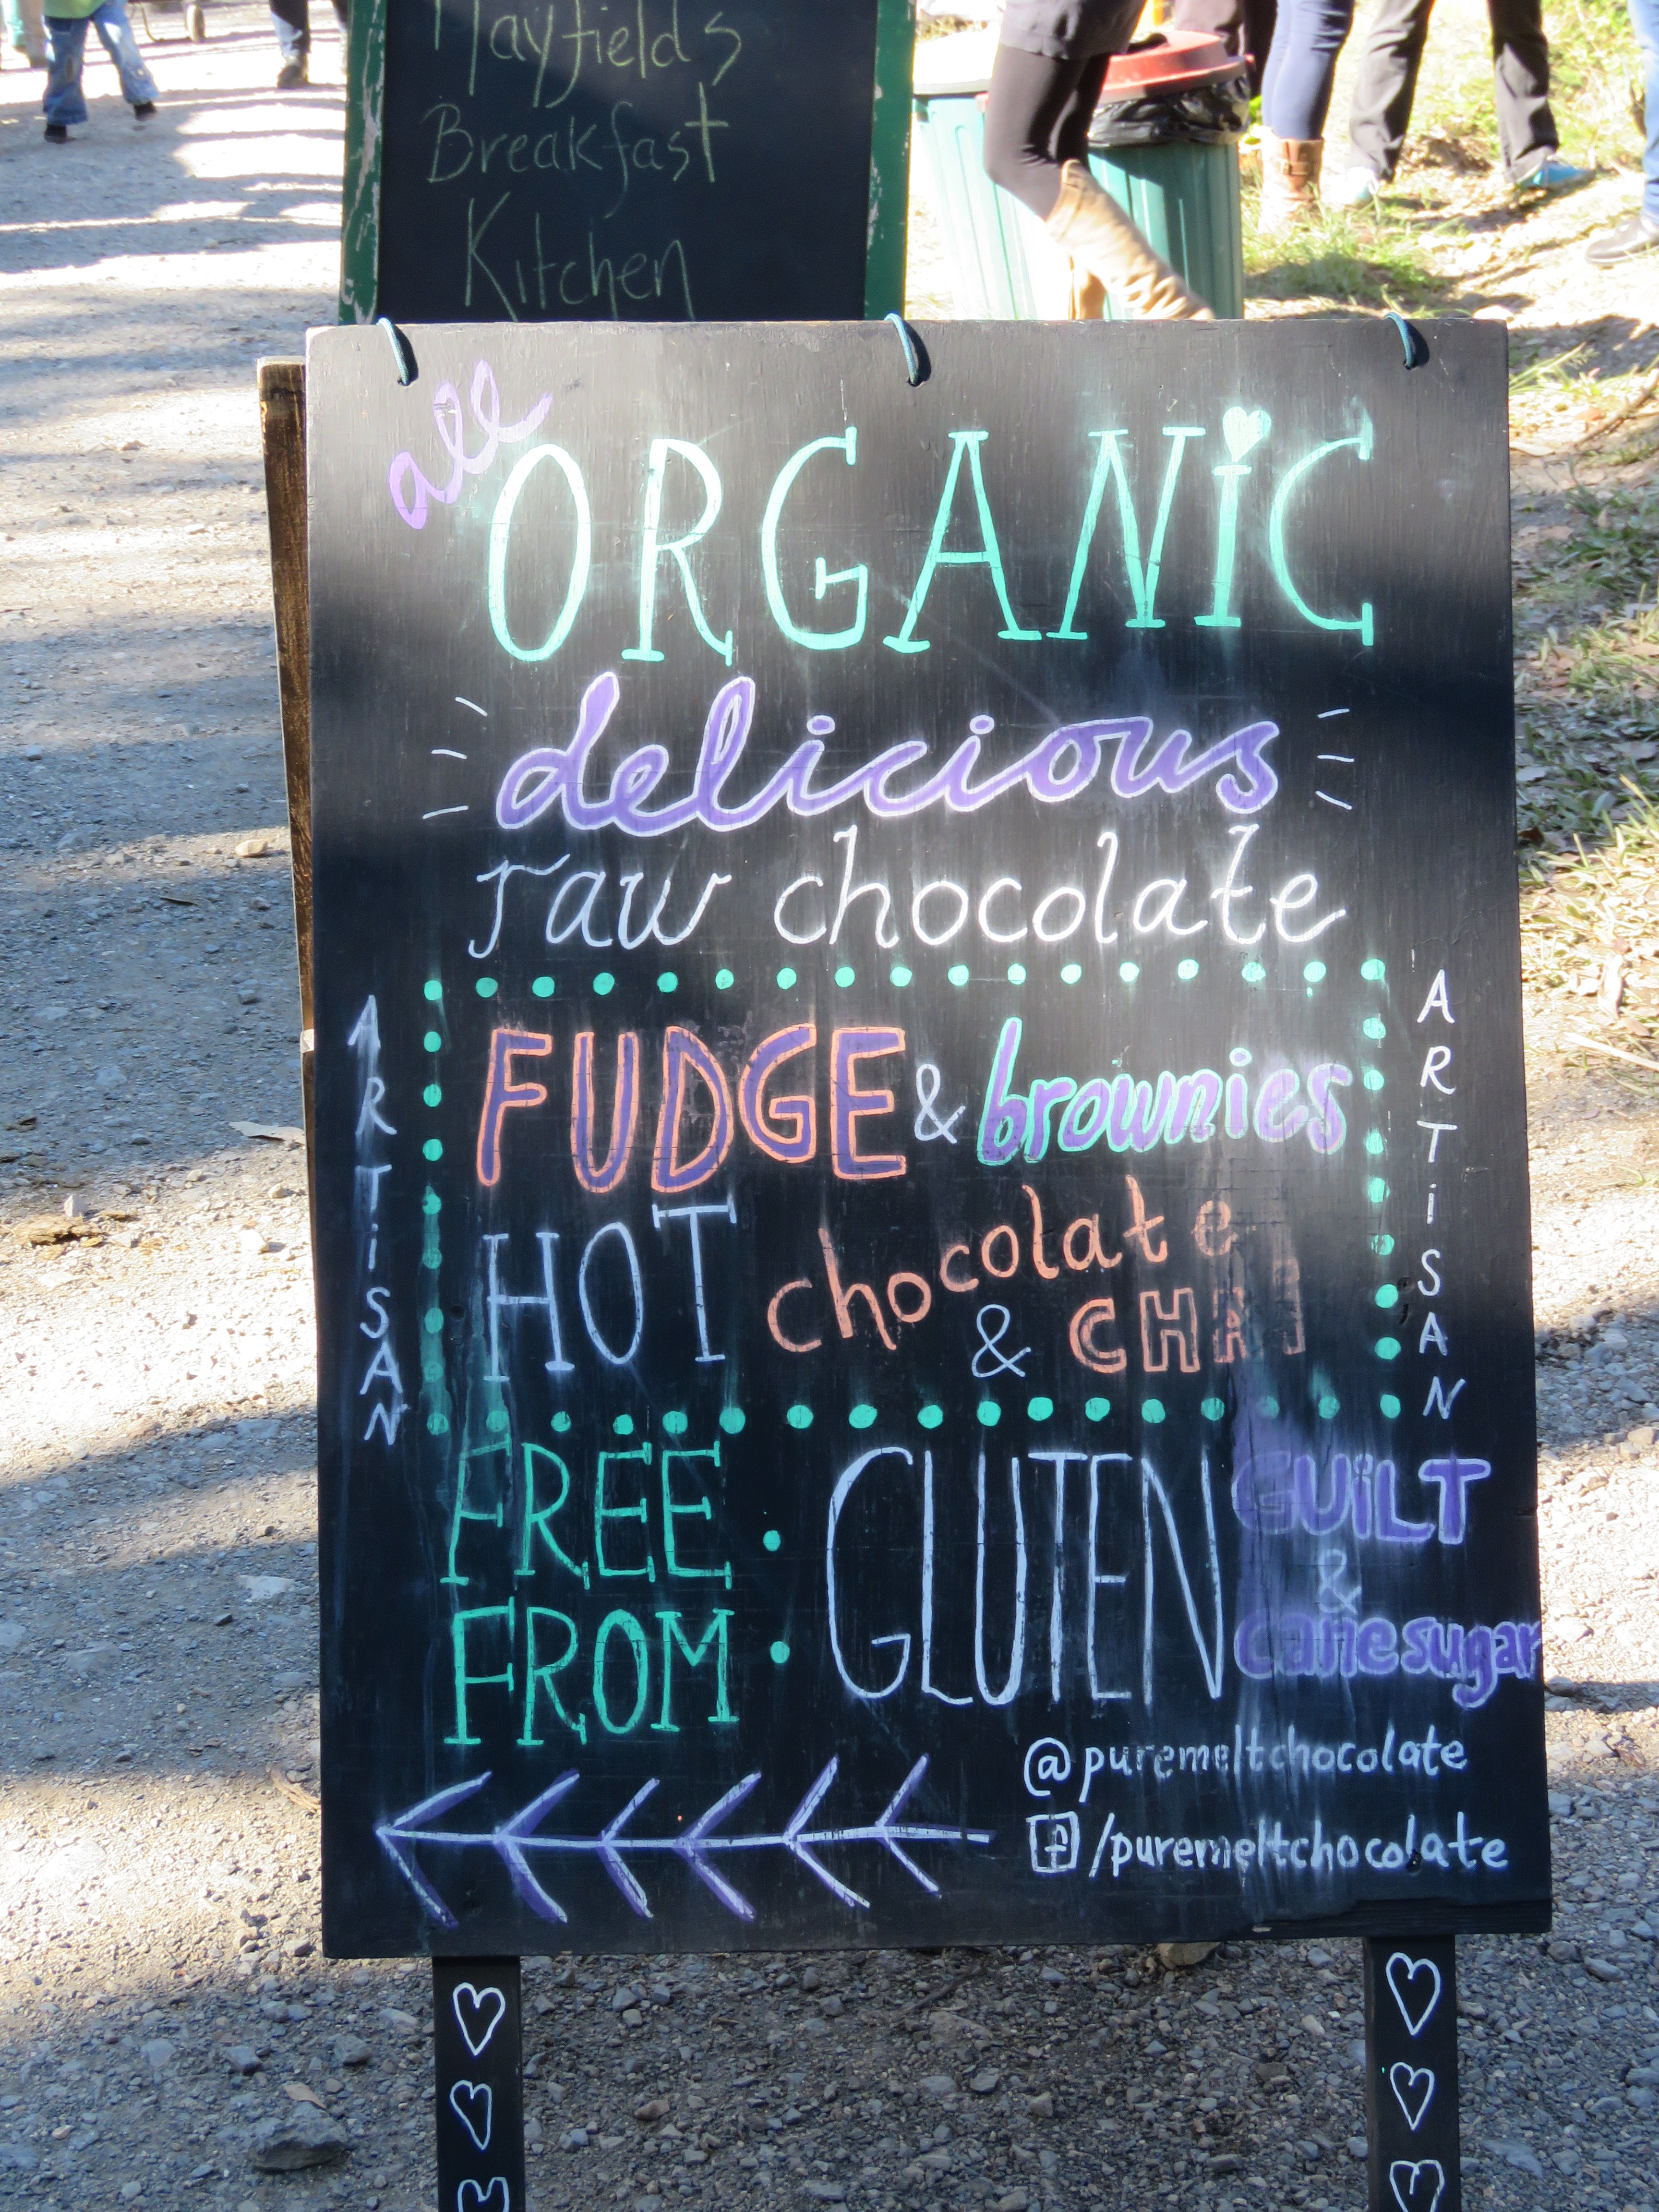 Mayfields
Breakfast
Kitchen
all
ORGANiC
delicious
raw chocolate
ARTiSAN
FUDGE & brownies
HOT chocolate
& CHAI
ARTiSAN
FREE · GLUTEN GUiLT
&
FROM · canesugar
@puremeltchocolate
f/puremeltchocolate